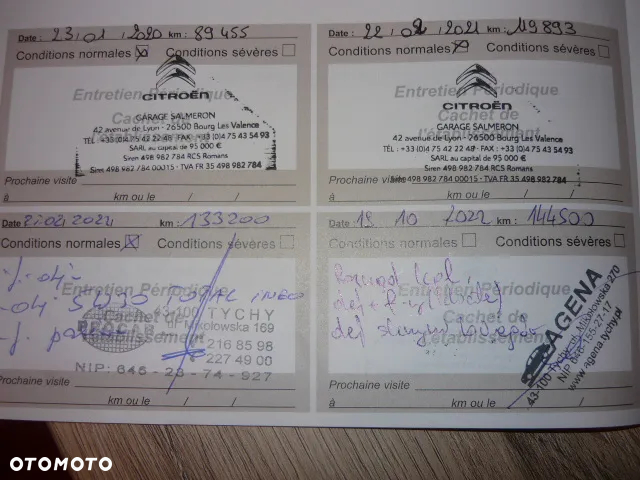 Date : 23/01/2020 km : 89 455
Conditions normales Conditions sévères
Entretien Périodique
CITROËN
Cachet de
GARAGE SALMERON
42 avenue de Lyon - 26500 Bourg Les Valence
TÉL : +33 (0)4 75 42 22 48 - FAX : +33 (0)4 75 43 54 93
SARL au capital de 95 000 €
Siren 498 982 784 RCS Romans
Siret 498 982 784 00015 - TVA FR 35 498 982 784
Prochaine visite
à km ou le / /
Date : 22/02/2021 km : 119 893
Conditions normales Conditions sévères
Entretien Périodique
CITROËN
Cachet de
GARAGE SALMERON
42 avenue de Lyon - 26500 Bourg Les Valence
TÉL : +33 (0)4 75 42 22 48 - FAX : +33 (0)4 75 43 54 93
SARL au capital de 95 000 €
Siren 498 982 784 RCS Romans
Siret 498 982 784 00015 - TVA FR 35 498 982 784
Prochaine visite
à km ou le / /
Date 02 2022 km : 133200
Conditions normales Conditions sévères
Entretien Périodique
TOTAL INEO
Cachet de
43-100 TYCHY
ul. Mikołowska 169
l'établissement
216 85 98
227 49 00
NIP: 646-23-74-927
Prochaine visite
à km ou le / /
Date 19 10 2022 km : 144500
Conditions normales Conditions sévères
Entretien Périodique
Cachet de
l'établissement
AGENA
43-100 Tychy, ul. Mikołowska 270
www.agena.tychy.pl
Prochaine visite
à km ou le / /
OTOMOTO